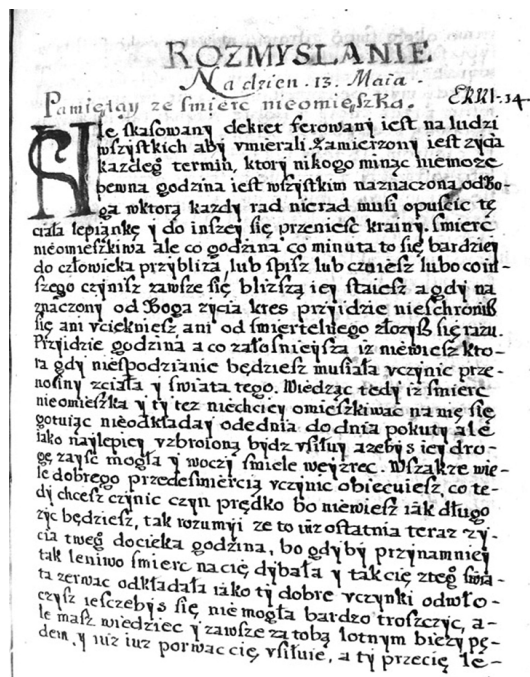 ROZMYSLANIE
Na dzien .13. Maia.
Pamiętay ze smierc nieomięszka.
Nie skasowany dekret ferowany iest na ludzi
wszystkich aby vmierali. Zamierzony iest zycia
kazdeg termin, ktory nikogo minąc niemoze
pewna godzina iest wszystkim naznaczona od Bo-
ga wktorą kazdy rad nierad musi opuscic tę
ciała lepiankę y do inszey się przeniesc krainy. smierc
nieomieszkiwa ale co godzina co minuta to się bardziey
do człowieka przybliza, lub spisz lub czuiesz lubo co in-
szego czynisz zawsze się blizszą iey staiesz a gdy na
znaczony od Boga zycia kres przyidzie nieschronisz
się ani vciekniesz ani od smiertelnego złozysz się razu.
Przyidzie godzina a co załosnieysza iz niewiesz kto-
ra gdy niespodzianie będziesz musiała vczynic prze-
nosiny zciała y swiata tego. Wiedząc tedy iz smierc
nieomieszka y ty tez niechciey omieszkiwac na nię się
gotuiąc nieodkładay odednia do dnia pokuty ale
iako naylepiey vzbroioną bydz vsiłuy azebys iey dro-
gę zayśc mogła y woczy smiele weyzrec. Wszakze wie-
le dobrego przedesmiercią vczynic obiecuiesz, co te-
dy chcesz czynic czyn prędko bo niewiesz iak długo
zyc będziesz, tak rozumyi ze to iuz ostatnia teraz zy-
cia tweg docieka godzina, bo gdyby przynamniey
tak leniwo smierc nacię dybała y takcię zteg swia-
ta zerwac odkładała iako ty dobre vczynki odwło-
czysz iesczebys się nie mogła bardzo troszczyc, a-
le masz wiedziec y zawsze za tobą lotnym biezy pę-
dem, y iuz iuz porwac cię vsiłuie, a ty przecię le-